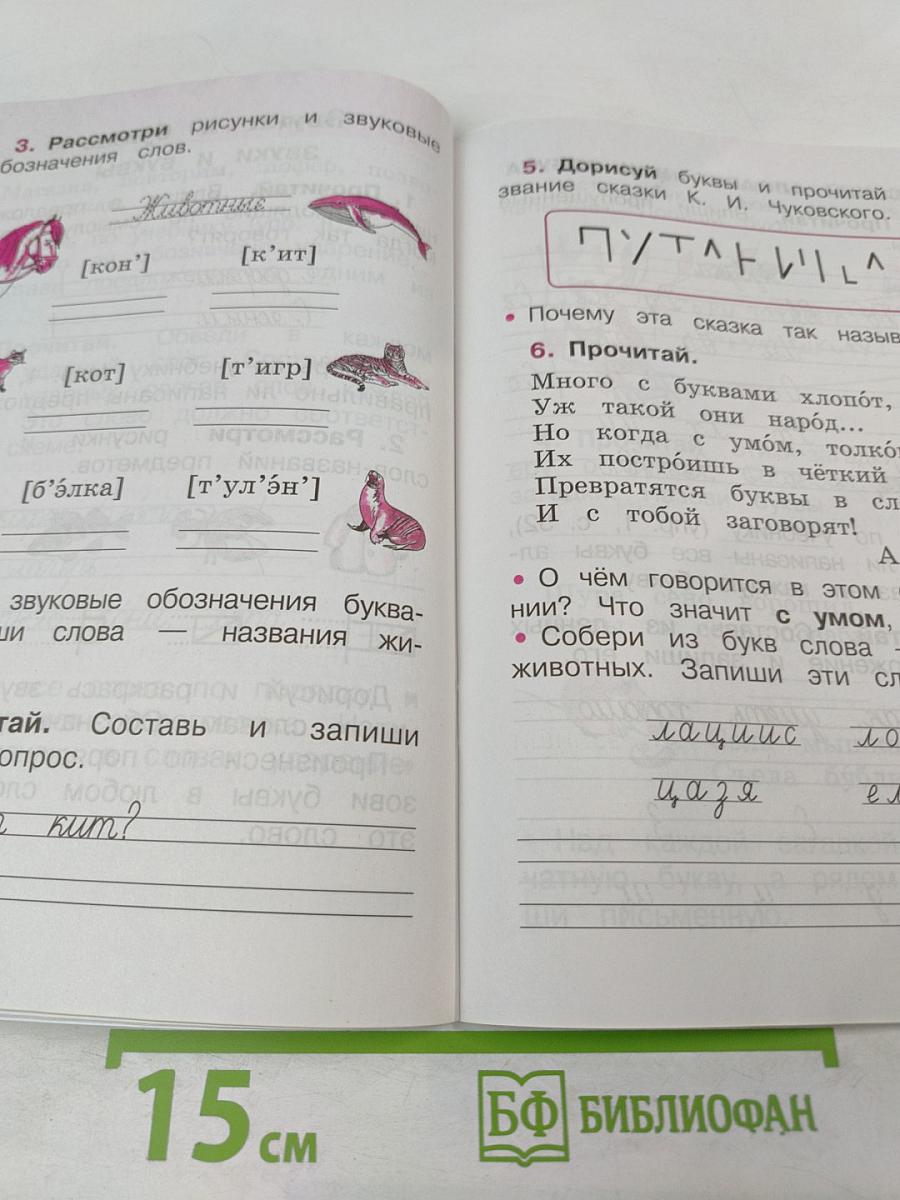 3. Рассмотри рисунки и звуковые
обозначения слов.
Животные
[кон’] [к’ит]
[кот] [т’игр]
[б’э́лка] [т’ул’э́н’]
звуковые обозначения буква-
ши слова — названия жи-
тай. Составь и запиши
опрос.
кит?
5. Дорисуй буквы и прочитай
звание сказки К. И. Чуковского.
• Почему эта сказка так назыв
6. Прочитай.
Много с буквами хлопо́т,
Уж такой они наро́д...
Но когда с умо́м, толко́
Их постро́ишь в чёткий
Превратятся буквы в сл
И с тобой заговорят!
А
• О чём говорится в этом
нии? Что значит с умом,
• Собери из букв слова –
животных. Запиши эти сл
лациис ло
цазя ел
15 см
БФ БИБЛИОФАН